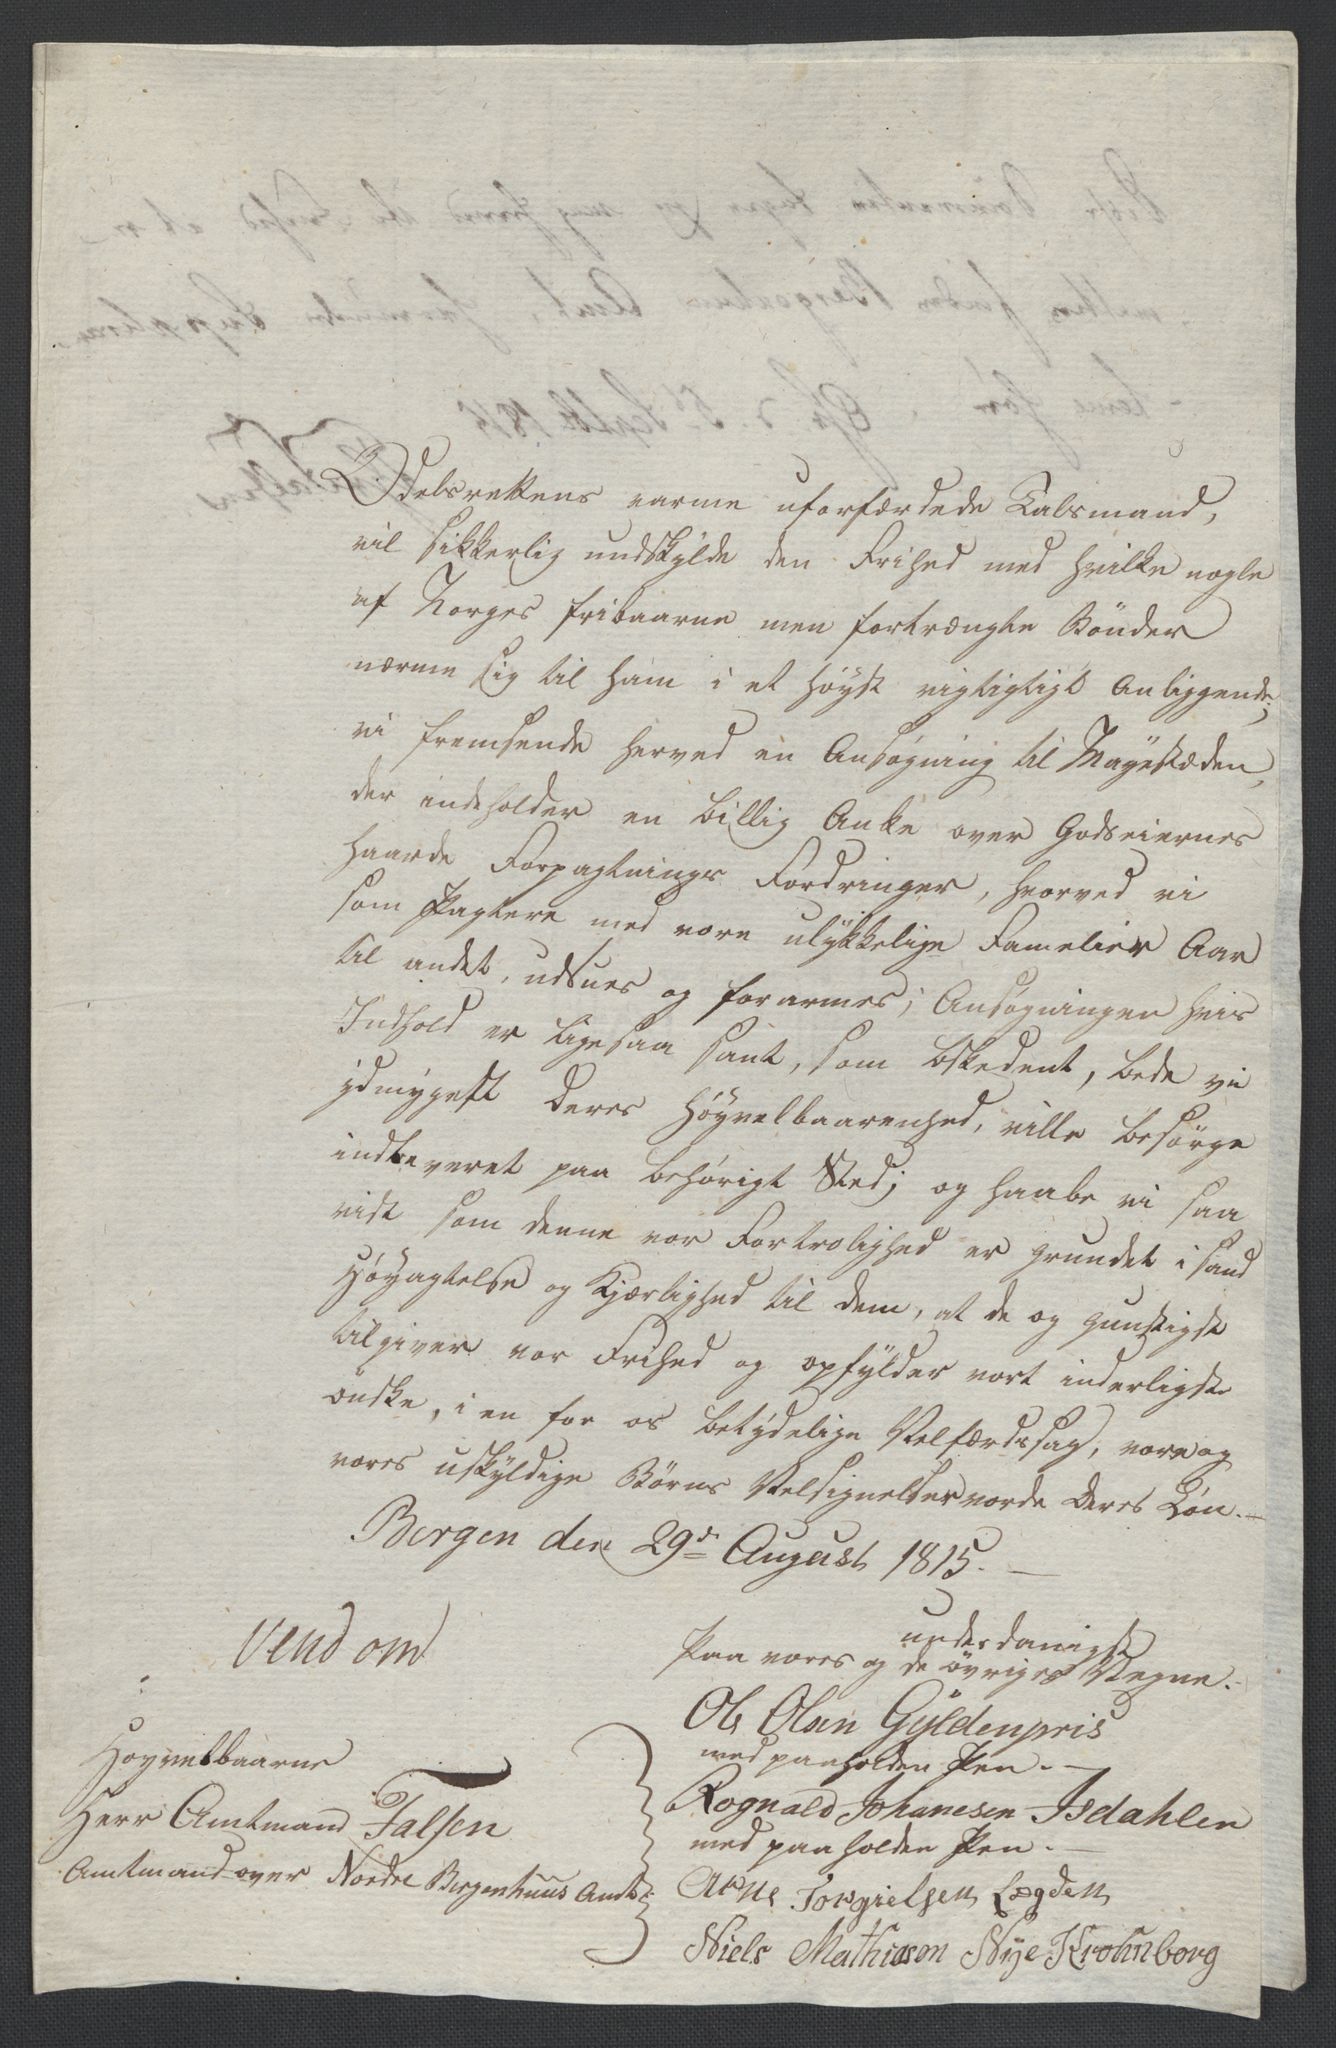 Odelsrettens varme uforfærdede Talsmand,
vil sikkerlig undskylde den Frihed med hvilke nogle
af Norges fribaarne men fortrængte Bönder
nærme sig til ham i et höyst vigtigtigt Anliggende;
vi fremsende herved en Ansøgning til Mayestæden,
der indeholder en billig Anke over Godseiernes
haarde Forpagtnings Fordringer, hvorved vi
som Pagtere med vore ulykkelige Famelier Aar
til andet, udsues og forarmes; Ansøgningen hvis
Indhold er ligesaa sant, som bskedent, bede vi
ydmygest Deres Höyvelbaarenhed, ville besörge
indleveret paa behørigt Sted; og haabe vi saa
vist som denne vor Fortrolighed er grundet i sand
Höyagtelse og Kjærlighed til dem, at de og gunstigst
tilgiver vor Frihed og opfylder vort inderligste
önske, i en for os betydelige Velfærdssag, vore og
vores uskyldige Börns Velsignelser vorde Deres Lön.—
Bergen den 29de August 1815.—
underdanigst
Paa vores og de övriges Vegne.
Vend om
Ole Olsen Gyldenpris
med paaholden Pen.—
Rognald Johanesen Isdahlen
med paaholden Pen.—
Arne Torgielsen Løgden
Niels Mathiesen Nye Krohnborg
Høyvelbaarne
Herr Amtmand Falsen
Amtmand over Nordre Bergenhuus Amt